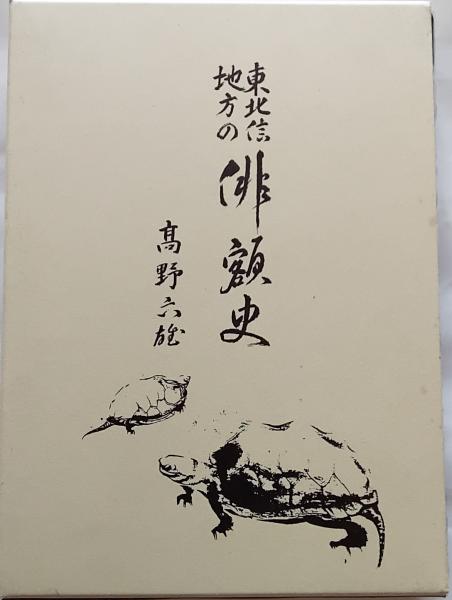 東北信
地方の
俳額史
高野六雄